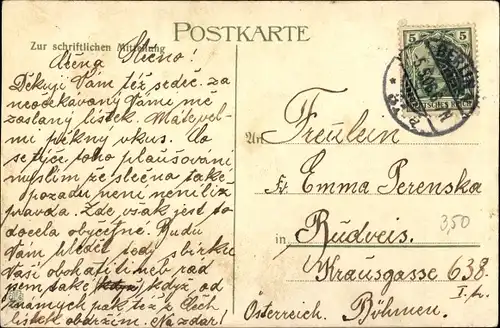 POSTKARTE
Zur schriftlichen Mitteilung
Ctěná Slečno!
Děkuji Vám též srdeč. za
neočekávaný Vámi mě
zaslaný lístek. Máte vel-
mi pěkný vkus. Co
se týče toho plaušování
myslím že slečna také
pozadu není neníliž
pravda. Zde však jest to
docela obyčejné. Budu
Vám hleděti tedy sbírku
Vaši obohatiti neb rád
jsem také když, od
známých pak též z Čech
lístek obdržím. Na zdar!
5 5
DEUTSCHES REICH
BERLIN
N
An
Fräulein
Fr. Emma Perenska
in Budveis.
Krausgasse 638.
I. p.
Österreich. Böhmen.
3,50